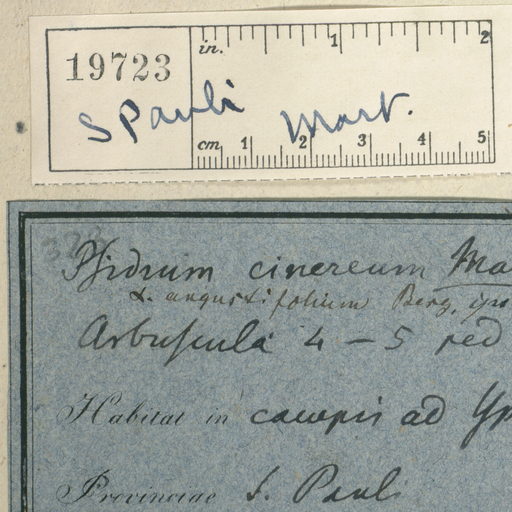 in. 1 2
19723
S Pauli Mart.
cm 1 2 3 4 5
Psidium cinereum Ma
α. angustifolium Berg, ips
Arbuscula 4 – 5 ped
Habitat in campis ad Yp
Provinciae S. Pauli